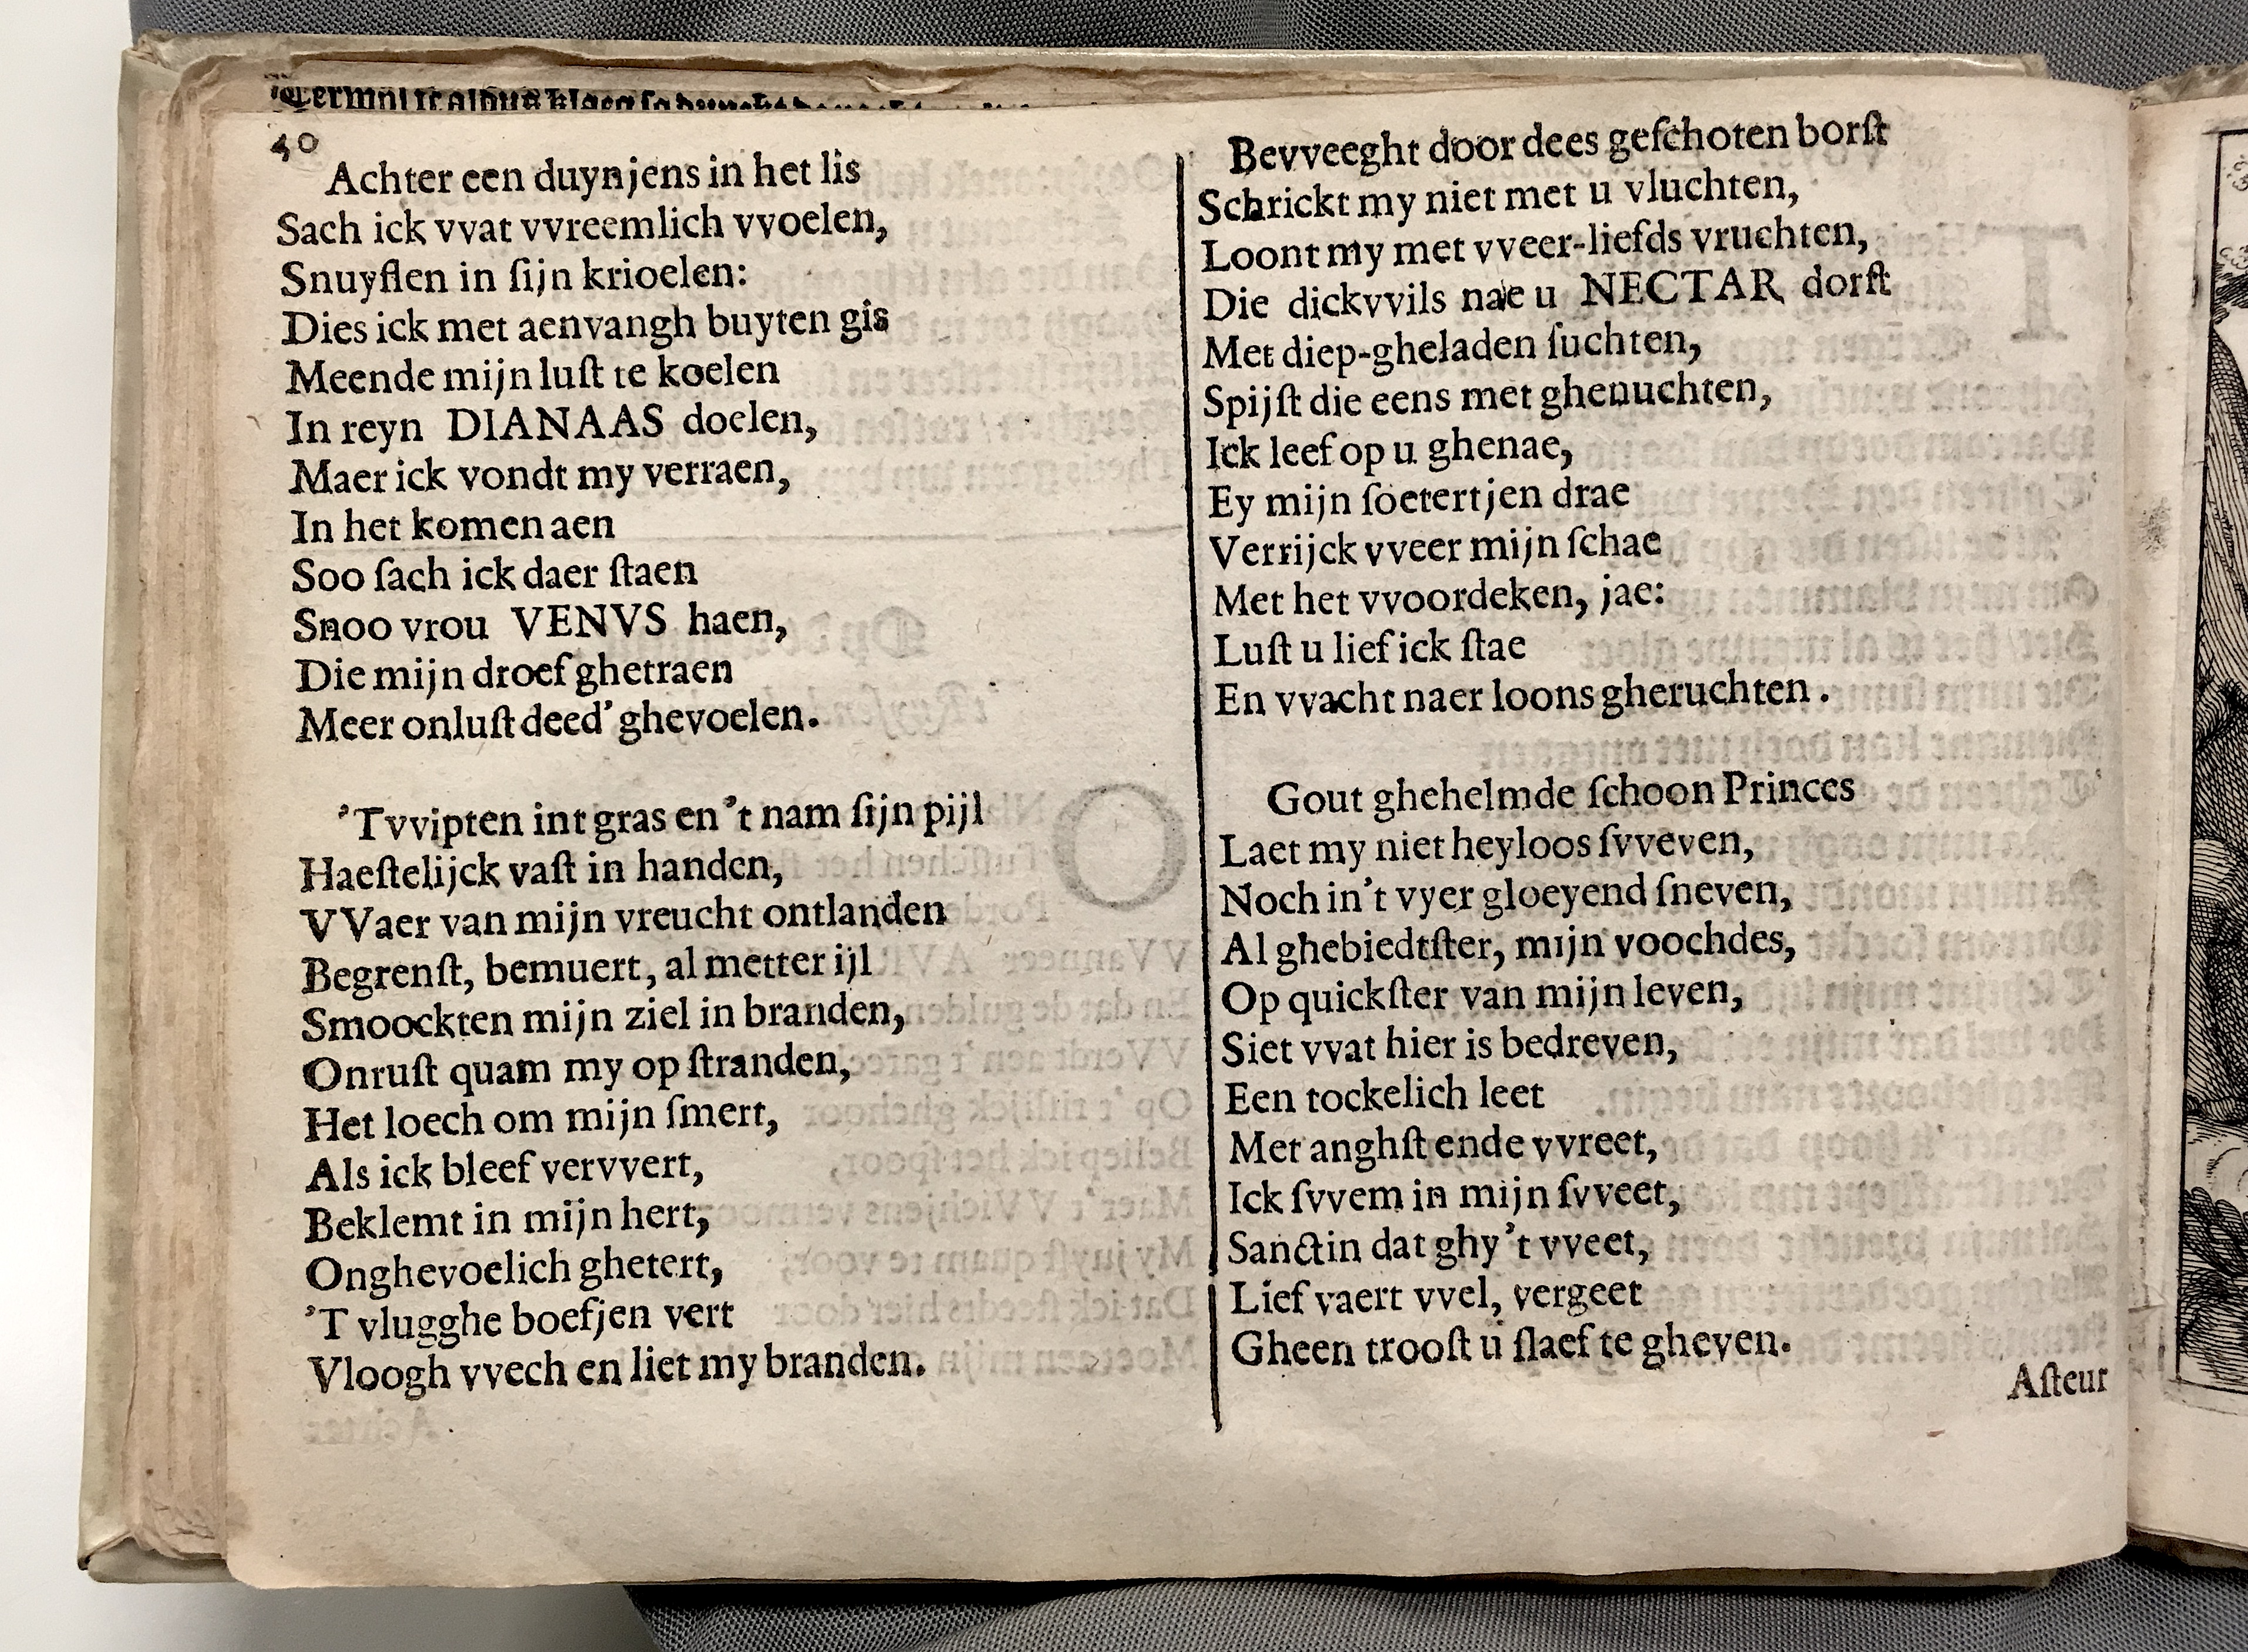 40
Achter een duynjens in het lis
Sach ick vvat vvreemlich vvoelen,
Snuyflen in ſijn krioelen:
Dies ick met aenvangh buyten gis
Meende mijn luſt te koelen
In reyn DIANAAS doelen,
Maer ick vondt my verraen,
In het komen aen
Soo ſach ick daer ſtaen
Snoo vrou VENVS haen,
Die mijn droef ghetraen
Meer onluſt deed' ghevoelen.
'Tvvipten int gras en 't nam ſijn pijl
Haeſtelijck vaſt in handen,
VVaer van mijn vreucht ontlanden
Begrenſt, bemuert, al metter ijl
Smoockten mijn ziel in branden,
Onruſt quam my op ſtranden,
Het loech om mijn ſmert,
Als ick bleef vervvert,
Beklemt in mijn hert,
Onghevoelich ghetert,
'T vlugghe boefjen vert
Vloogh vvech en liet my branden.
Bevveeght door dees geſchoten borſt
Schrickt my niet met u vluchten,
Loont my met vveer-liefds vruchten,
Die dickvvils nae u NECTAR dorſt
Met diep-gheladen ſuchten,
Spijſt die eens met ghenuchten,
Ick leef op u ghenae,
Ey mijn ſoetertjen drae
Verrijck vveer mijn ſchae
Met het vvoordeken, jae:
Luſt u lief ick ſtae
En vvacht naer loons gheruchten.
Gout ghehelmde ſchoon Princes
Laet my niet heyloos ſvveven,
Noch in't vyer gloeyend ſneven,
Al ghebiedtſter, mijn voochdes,
Op quickſter van mijn leven,
Siet vvat hier is bedreven,
Een tockelich leet
Met anghſt ende vvreet,
Ick ſvvem in mijn ſvveet,
Sanctin dat ghy 't vveet,
Lief vaert vvel, vergeet
Gheen trooſt u ſlaef te gheven.
Aſteur